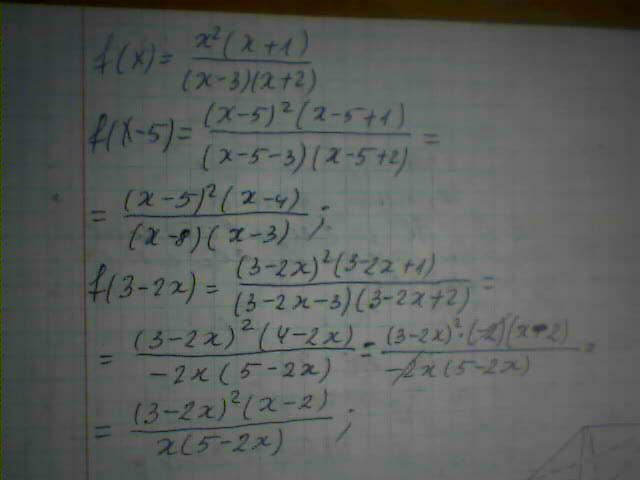 f(x) = x²(x+1) / (x-3)(x+2)
f(x-5) = (x-5)²(x-5+1) / (x-5-3)(x-5+2) =
= (x-5)²(x-4) / (x-8)(x-3) ;
f(3-2x) = (3-2x)²(3-2x+1) / (3-2x-3)(3-2x+2) =
= (3-2x)²(4-2x) / -2x(5-2x) = (3-2x)²·(-2)(x-2) / -2x(5-2x) =
= (3-2x)²(x-2) / x(5-2x) ;